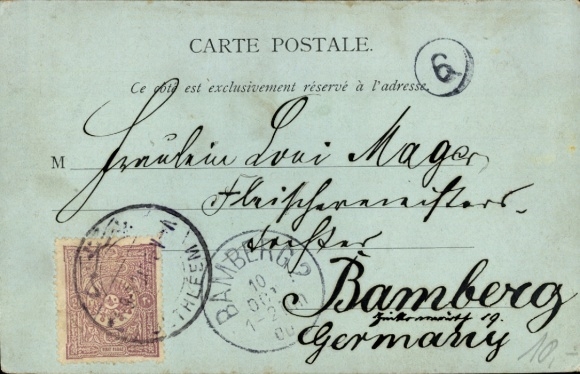 CARTE POSTALE.
6
Ce côté est exclusivement réservé à l'adresse.
M Fräulein Loni Mager
Fleischermeisters-
tochter
Bamberg
19.
Germany
BAMBERG 2
10
OCT
1-2
10.-